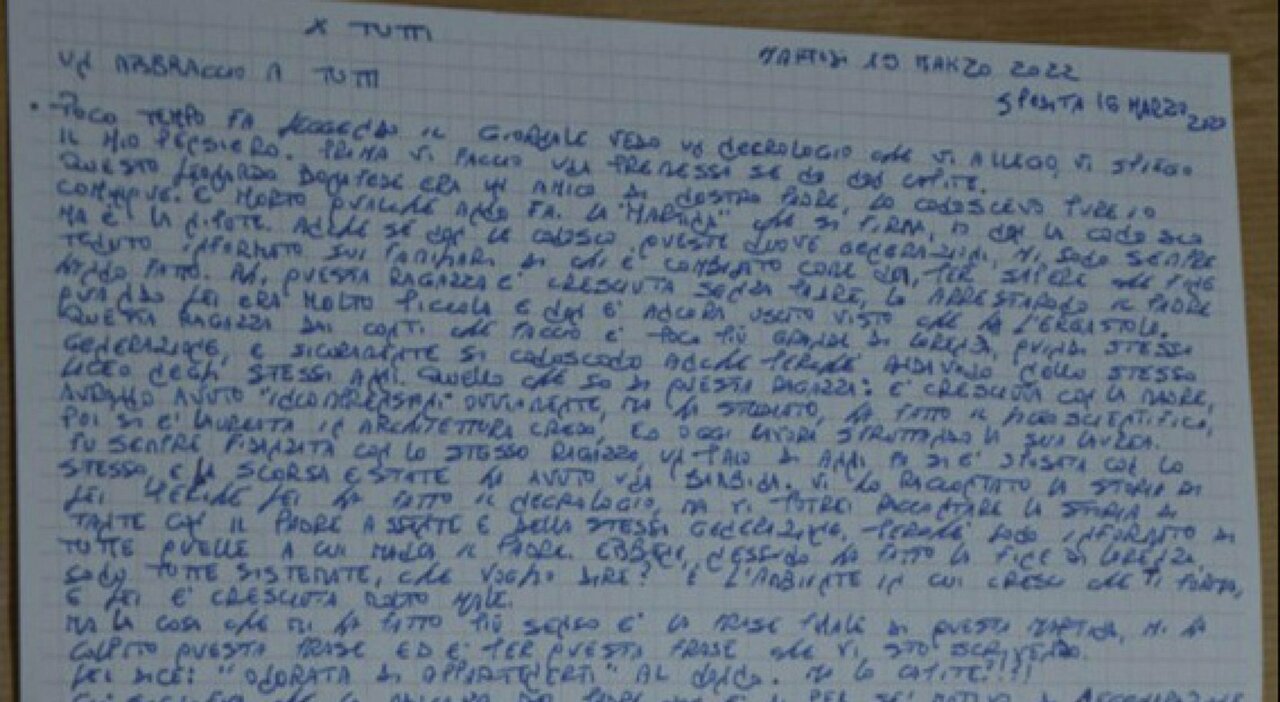 X TUTTI
MARTEDI 15 MARZO 2022
UN ABBRACCIO A TUTTI
SPEDITA 16 MARZO 2022
• POCO TEMPO FA LEGGENDO IL GIORNALE VEDO UN NECROLOGIO CHE VI ALLEGO, VI SPIEGO
IL MIO PENSIERO. PRIMA VI FACCIO UNA PREMESSA SE NO NON CAPITE.
QUESTO LEONARDO BONAFEDE ERA UN AMICO DI NOSTRO PADRE, LO CONOSCEVO PURE IO
COMUNQUE. È MORTO QUALCHE ANNO FA. LA "MARTINA" CHE SI FIRMA, IO NON LA CONOSCO
MA È LA NIPOTE. ANCHE SE NON LE CONOSCO QUESTE NUOVE GENERAZIONI, MI SONO SEMPRE
TENUTO INFORMATO SUI FAMILIARI DI CHI È COMBINATO COME ME, PER SAPERE CHE FINE
HANNO FATTO. QUESTA RAGAZZA E' CRESCIUTA SENZA PADRE, LO ARRESTARONO IL PADRE
QUANDO LEI ERA MOLTO PICCOLA E NON E' ANCORA USCITO VISTO CHE HA L'ERGASTOLO.
QUESTA RAGAZZA DAI CONTI CHE FACCIO E' POCO PIÙ GRANDE DI LORENZA, QUINDI STESSA
GENERAZIONE, E SICURAMENTE SI CONOSCONO ANCHE PERCHÈ ANDAVANO NELLO STESSO
LICEO NEGLI STESSI ANNI. QUELLO CHE SO DI QUESTA RAGAZZA: E' CRESCIUTA CON LA MADRE,
AVRANNO AVUTO "INCOMPRENSIONI" OVVIAMENTE, MA HA STUDIATO, HA FATTO IL LICEO SCIENTIFICO,
POI SI E' LAUREATA IN ARCHITETTURA CREDO, ED OGGI LAVORA SFRUTTANDO LA SUA LAUREA.
FU SEMPRE FIDANZATA CON LO STESSO RAGAZZO, UN PAIO DI ANNI FA SI E' SPOSATA CON LO
STESSO, E LA SCORSA ESTATE HA AVUTO UNA BAMBINA. VI HO RACCONTATO LA STORIA DI
LEI PERCHÈ LEI HA FATTO IL NECROLOGIO, MA VI POTREI RACCONTARE LA STORIA DI
TANTE CON IL PADRE ASSENTE E DELLA STESSA GENERAZIONE, PERCHÈ SONO INFORMATO DI
TUTTE QUELLE A CUI MANCA IL PADRE. EBBENE, NESSUNA HA FATTO LA FINE DI LORENZA,
SONO TUTTE SISTEMATE, CHE VOGLIO DIRE? E' L'AMBIENTE IN CUI CRESCI CHE TI FORMA,
E LEI E' CRESCIUTA MOLTO MALE.
MA LA COSA CHE MI HA FATTO PIÙ SENSO E' LA FRASE FINALE DI QUESTA MARTINA, MI HA
COLPITO QUESTA FRASE ED E' PER QUESTA FRASE CHE VI STO SCRIVENDO.
LEI DICE: "ONORATA DI APPARTENERTI" AL NONNO. MA LO CAPITE?!!!